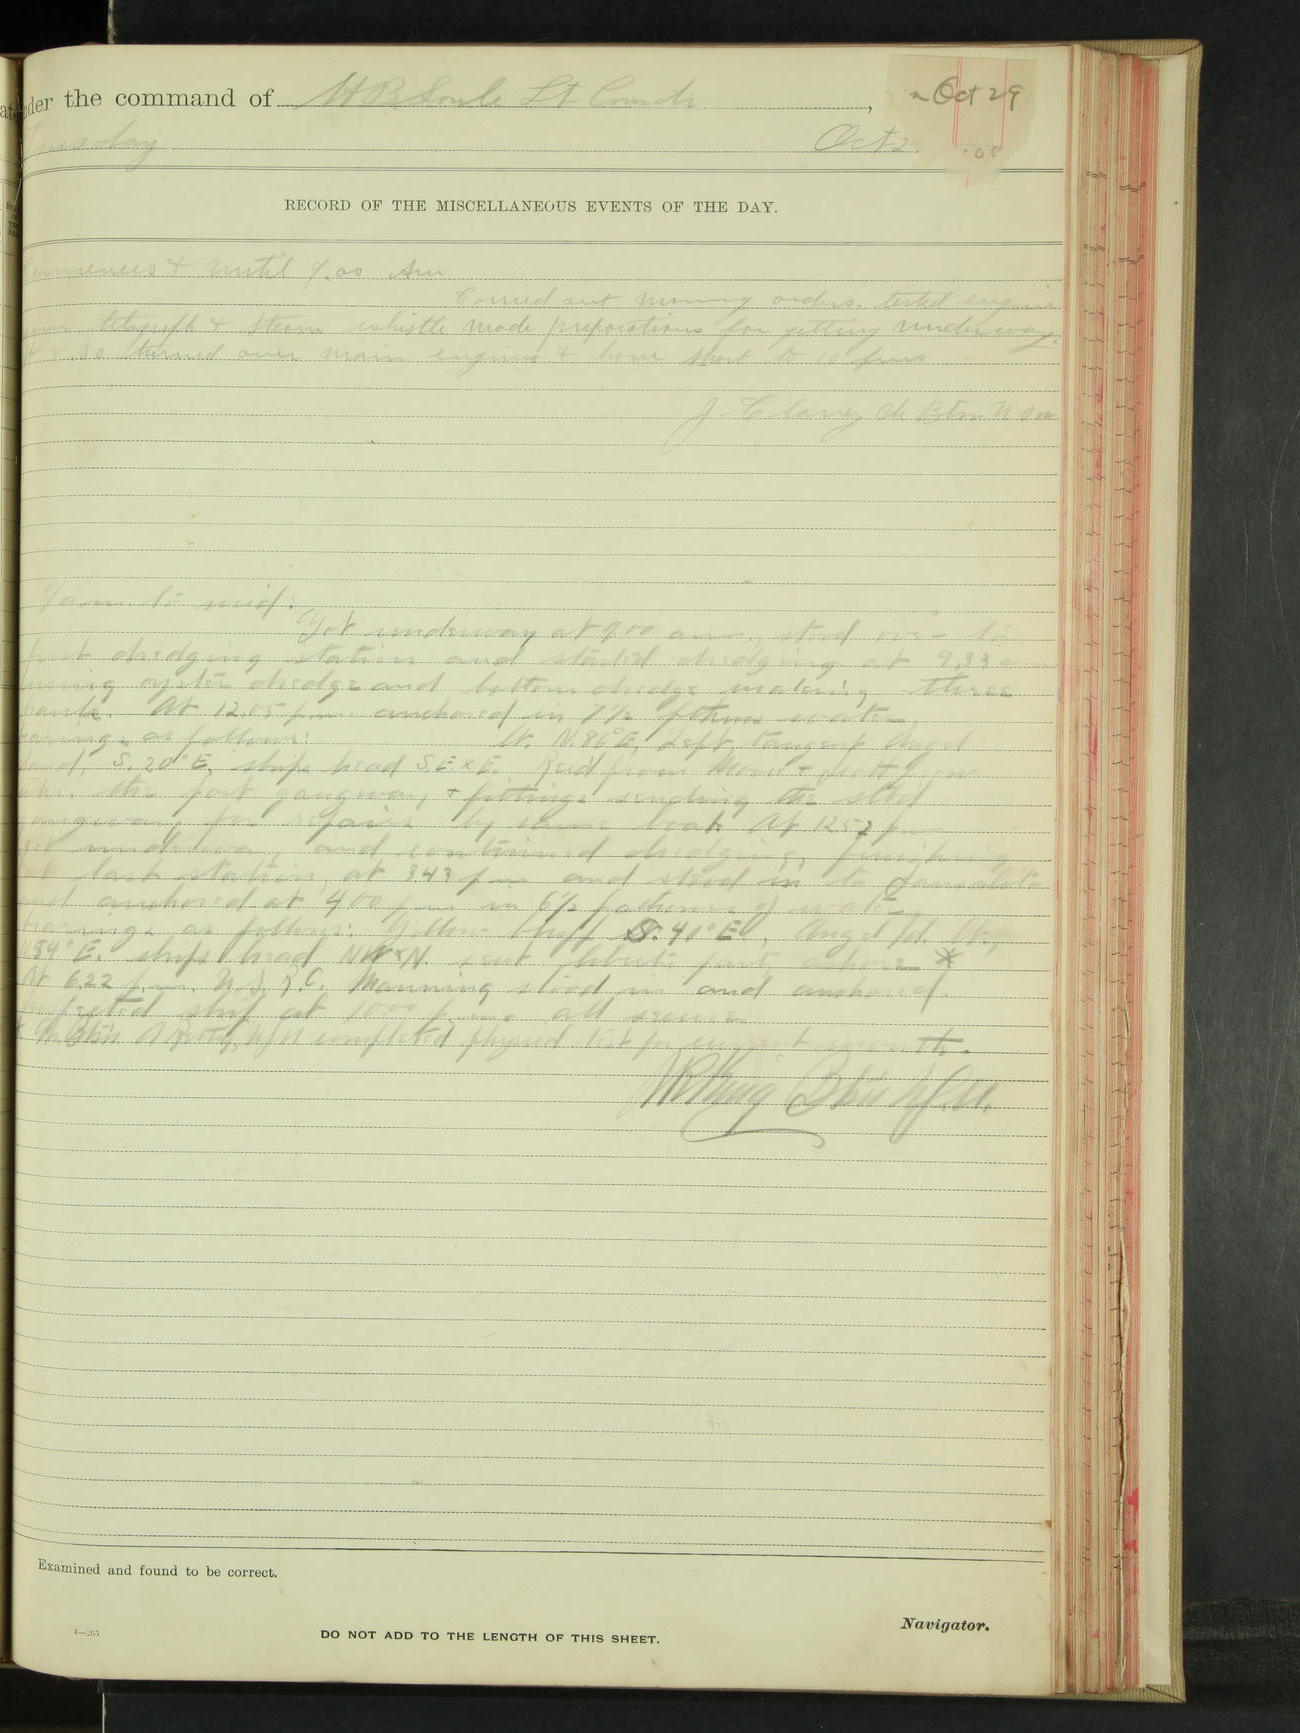 under the command of H B Soule Lt Comdr,
Oct 29
Tuesday Oct 29
RECORD OF THE MISCELLANEOUS EVENTS OF THE DAY.
& until 9.00 Am
Carried out morning orders. tested engine
telegraph & steam whistle made preparations for getting underway.
8.30 turned over main engines & hove short to 10 fms
J. Clancy Ch Btsn U S N
to mid:
Got underway at 9.00 a.m., stood over to
first dredging station and started dredging at 9.33 a.m.
using oyster dredge and bottom dredge making three
hauls. At 12.05 p.m. anchored in 7½ fthms water,
bearings as follows: Lt. N.86°E, Left tangent Angel
S. 20°E, ships head S.E.xE. Recd from Moore & Scott
the port gangway & fittings sending the stbd
gangway for repairs by same boat At 12.52 p.m.
got underway and continued dredging, finishing
last station, at 3.43 p.m. and stood in to Sausalito
and anchored at 4.00 p.m. in 6½ fathoms of water
bearings as follows: Yellow bluff S. 41°E, Angel Id.
N84°E. ships head NWxN. sent liberty party ashore *
At 6.22 p.m. U.S.R.C. Manning stood in and anchored.
Inspected ship at 10.00 p.m. all secure
completed physical test for current month.
Btsn U.S.N.
Examined and found to be correct.
4—265
DO NOT ADD TO THE LENGTH OF THIS SHEET.
Navigator.